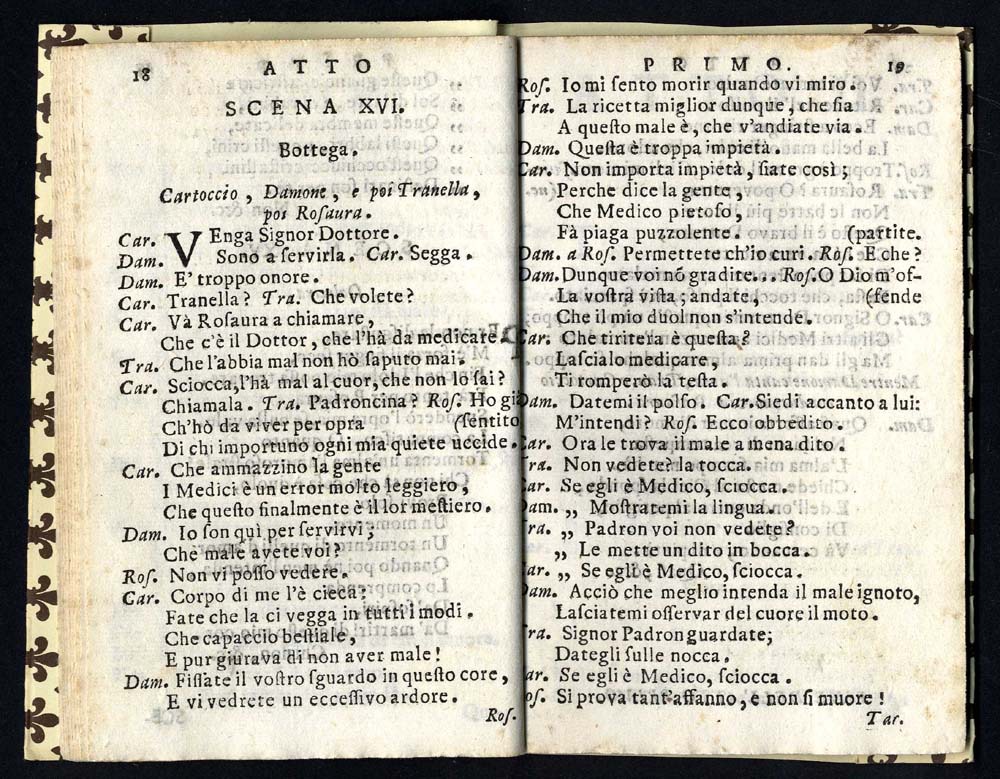 18 ATTO
SCENA XVI.
Bottega.
Cartoccio, Damone, e poi Tranella,
poi Roſaura.
Car. VEnga Signor Dottore.
Dam. Sono a ſervirla. Car. Segga.
Dam. E' troppo onore.
Car. Tranella? Tra. Che volete?
Car. Và Roſaura a chiamare,
Che c'è il Dottor, che l'hà da medicare.
Tra. Che l'abbia mal non hò ſaputo mai.
Car. Sciocca, l'hà mal al cuor, che non lo ſai?
Chiamala. Tra. Padroncina? Roſ. Ho già
Ch'hò da viver per opra (ſentito
Di chi importuno ogni mia quiete uccide.
Car. Che ammazzino la gente
I Medici è un error molto leggiero,
Che queſto finalmente è il lor meſtiero.
Dam. Io ſon quì per ſervirvi;
Che male avete voi?
Roſ. Non vi poſſo vedere.
Car. Corpo di me l'è cieca?
Fate che la ci vegga in tutti i modi.
Che capaccio beſtiale,
E pur giurava di non aver male!
Dam. Fiſſate il voſtro ſguardo in queſto core,
E vi vedrete un ecceſſivo ardore.
Roſ.
PRIMO. 19
Roſ. Io mi ſento morir quando vi miro.
Tra. La ricetta miglior dunque, che ſia
A queſto male è, che v'andiate via.
Dam. Queſta è troppa impietà.
Car. Non importa impietà, ſiate così;
Perche dice la gente,
Che Medico pietoſo,
Fà piaga puzzolente. (partite.
Dam. a Roſ. Permettete ch'io curi. Roſ. E che?
Dam. Dunque voi nō gradite... Roſ. O Dio m'of-
La voſtra viſta; andate, (fende
Che il mio duol non s'intende.
Car. Che tiritera è queſta?
Laſcialo medicare,
Ti romperò la teſta.
Dam. Datemi il polſo. Car. Siedi accanto a lui:
M'intendi? Roſ. Ecco obbedito.
Car. Ora le trova il male a mena dito.
Tra. Non vedete? la tocca.
Car. Se egli è Medico, ſciocca.
Dam. „ Moſtratemi la lingua.
Tra. „ Padron voi non vedete?
„ Le mette un dito in bocca.
Car. „ Se egli è Medico, ſciocca.
Dam. Acciò che meglio intenda il male ignoto,
Laſciatemi oſſervar del cuore il moto.
Tra. Signor Padron guardate;
Dategli ſulle nocca.
Car. Se egli è Medico, ſciocca.
Roſ. Si prova tant'affanno, e non ſi muore!
Tar.